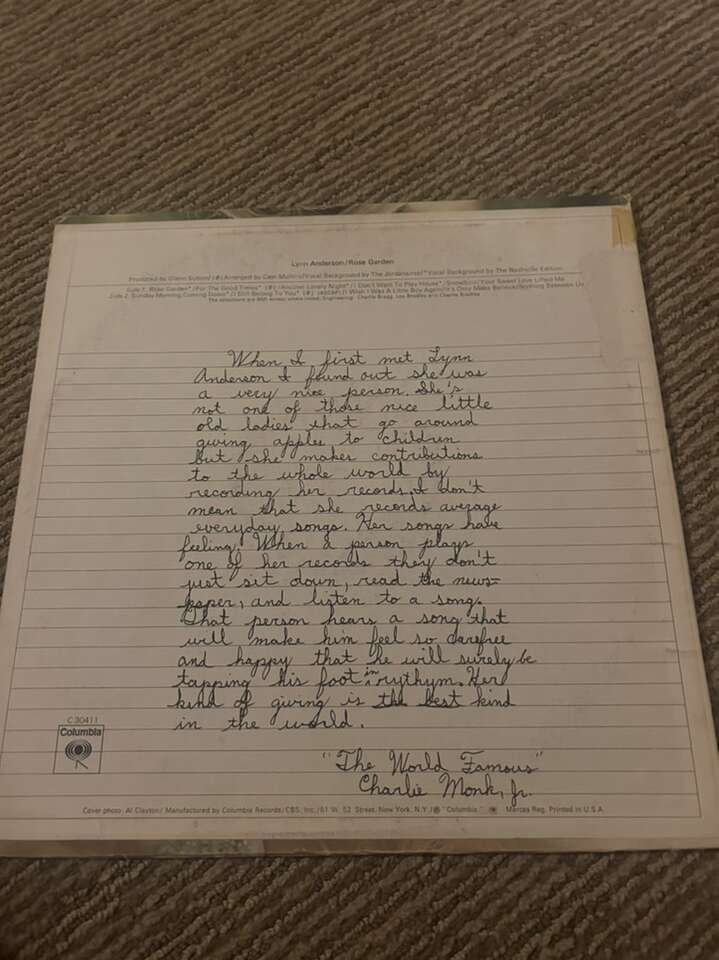 Lynn Anderson/Rose Garden
Produced by Glenn Sutton/ (#) Arranged by Cam Mullins/Vocal Background by The Jordanaires/*Vocal Background by The Nashville Edition
Side 1: Rose Garden* /For The Good Times* (#) /Another Lonely Night* /I Don't Want To Play House* /Snowbird/Your Sweet Love Lifted Me
Side 2: Sunday Morning Coming Down* /I Still Belong To You* (#) (ASCAP)/I Wish I Was A Little Boy Again/It's Only Make Believe/Nothing Between Us
The selections are BMI except where noted. Engineering: Charlie Bragg, Lou Bradley and Charlie Bradley
When I first met Lynn
Anderson I found out she was
a very nice person. She's
not one of those nice little
old ladies that go around
giving apples to children
but she makes contributions
to the whole world by
recording her records. I don't
mean that she records average
everyday songs. Her songs have
feeling. When a person plays
one of her records they don't
just sit down, read the news=
paper, and listen to a song.
That person hears a song that
will make him feel so carefree
and happy that he will surely be
tapping his foot in rythym. Her
kind of giving is the best kind
in the world.
"The World Famous"
Charlie Monk, Jr.
C 30411
Columbia
Cover photo: Al Clayton/ Manufactured by Columbia Records/CBS, Inc./51 W. 52 Street, New York, N.Y./® "Columbia," Marcas Reg. Printed in U.S.A.